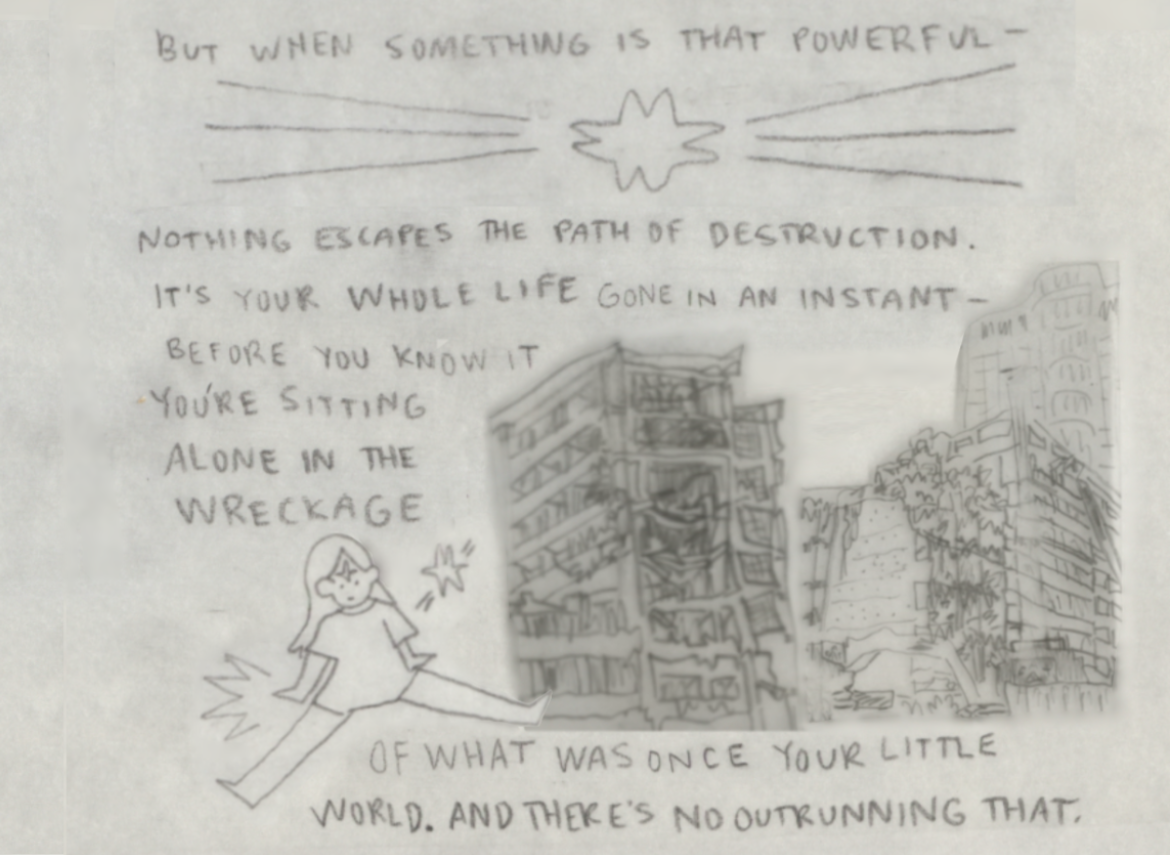 BUT WHEN SOMETHING IS THAT POWERFUL-
NOTHING ESCAPES THE PATH OF DESTRUCTION.
IT'S YOUR WHOLE LIFE GONE IN AN INSTANT-
BEFORE YOU KNOW IT
YOU'RE SITTING
ALONE IN THE
WRECKAGE
OF WHAT WAS ONCE YOUR LITTLE
WORLD. AND THERE'S NO OUTRUNNING THAT.